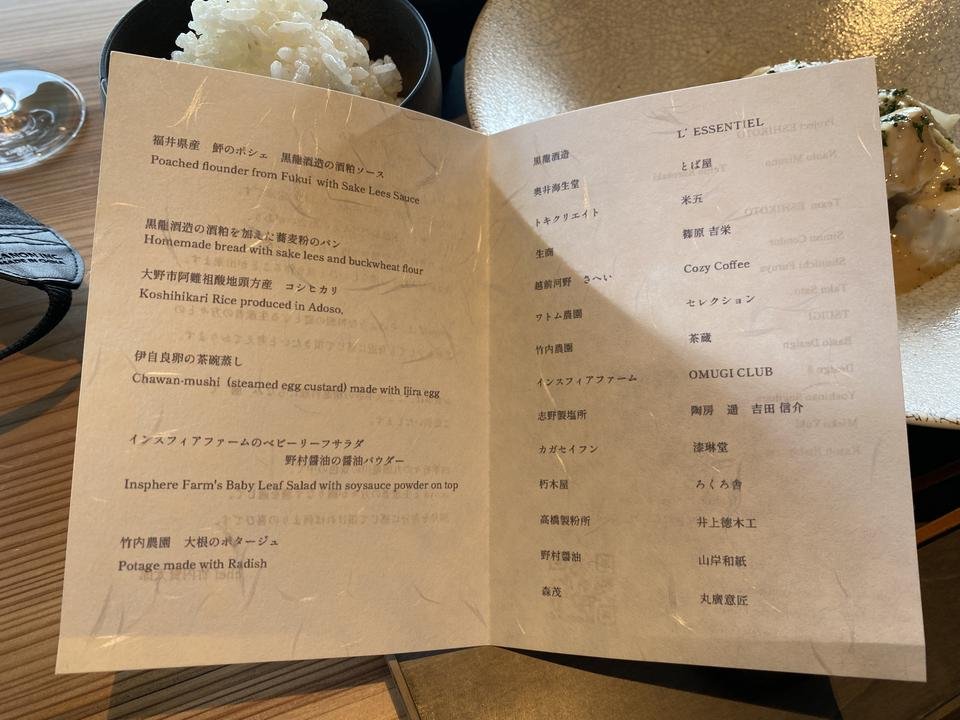 福井県産　鮃のポシェ　黒龍酒造の酒粕ソース
Poached flounder from Fukui with Sake Lees Sauce
黒龍酒造の酒粕を加えた蕎麦粉のパン
Homemade bread with sake lees and buckwheat flour
大野市阿難祖領地頭方産　コシヒカリ
Koshihikari Rice produced in Adoso,
伊自良卵の茶碗蒸し
Chawan-mushi (steamed egg custard) made with Ijira egg
インスフィアファームのベビーリーフサラダ
野村醤油の醤油パウダー
Insphere Farm's Baby Leaf Salad with soysauce powder on top
竹内農園　大根のポタージュ
Potage made with Radish
黒龍酒造
奥井海生堂
トキクリエイト
生商
越前河野　さへい
ワトム農園
竹内農園
インスフィアファーム
志野製塩所
カガセイフン
朽木屋
高橋製粉所
野村醤油
森茂
L' ESSENTIEL
とば屋
米五
篠原 吉栄
Cozy Coffee
セレクション
茶蔵
OMUGI CLUB
陶房　遥　吉田 信介
漆琳堂
ろくろ舎
井上徳木工
山岸和紙
丸廣意匠